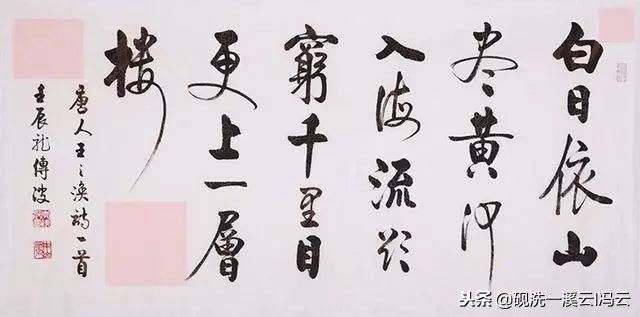 白日依山
尽黄河
入海流欲
窮千里目
更上一層
楼
唐人王之渙詩一首
壬辰龙傅波
头条 @砚洗一溪云I冯云